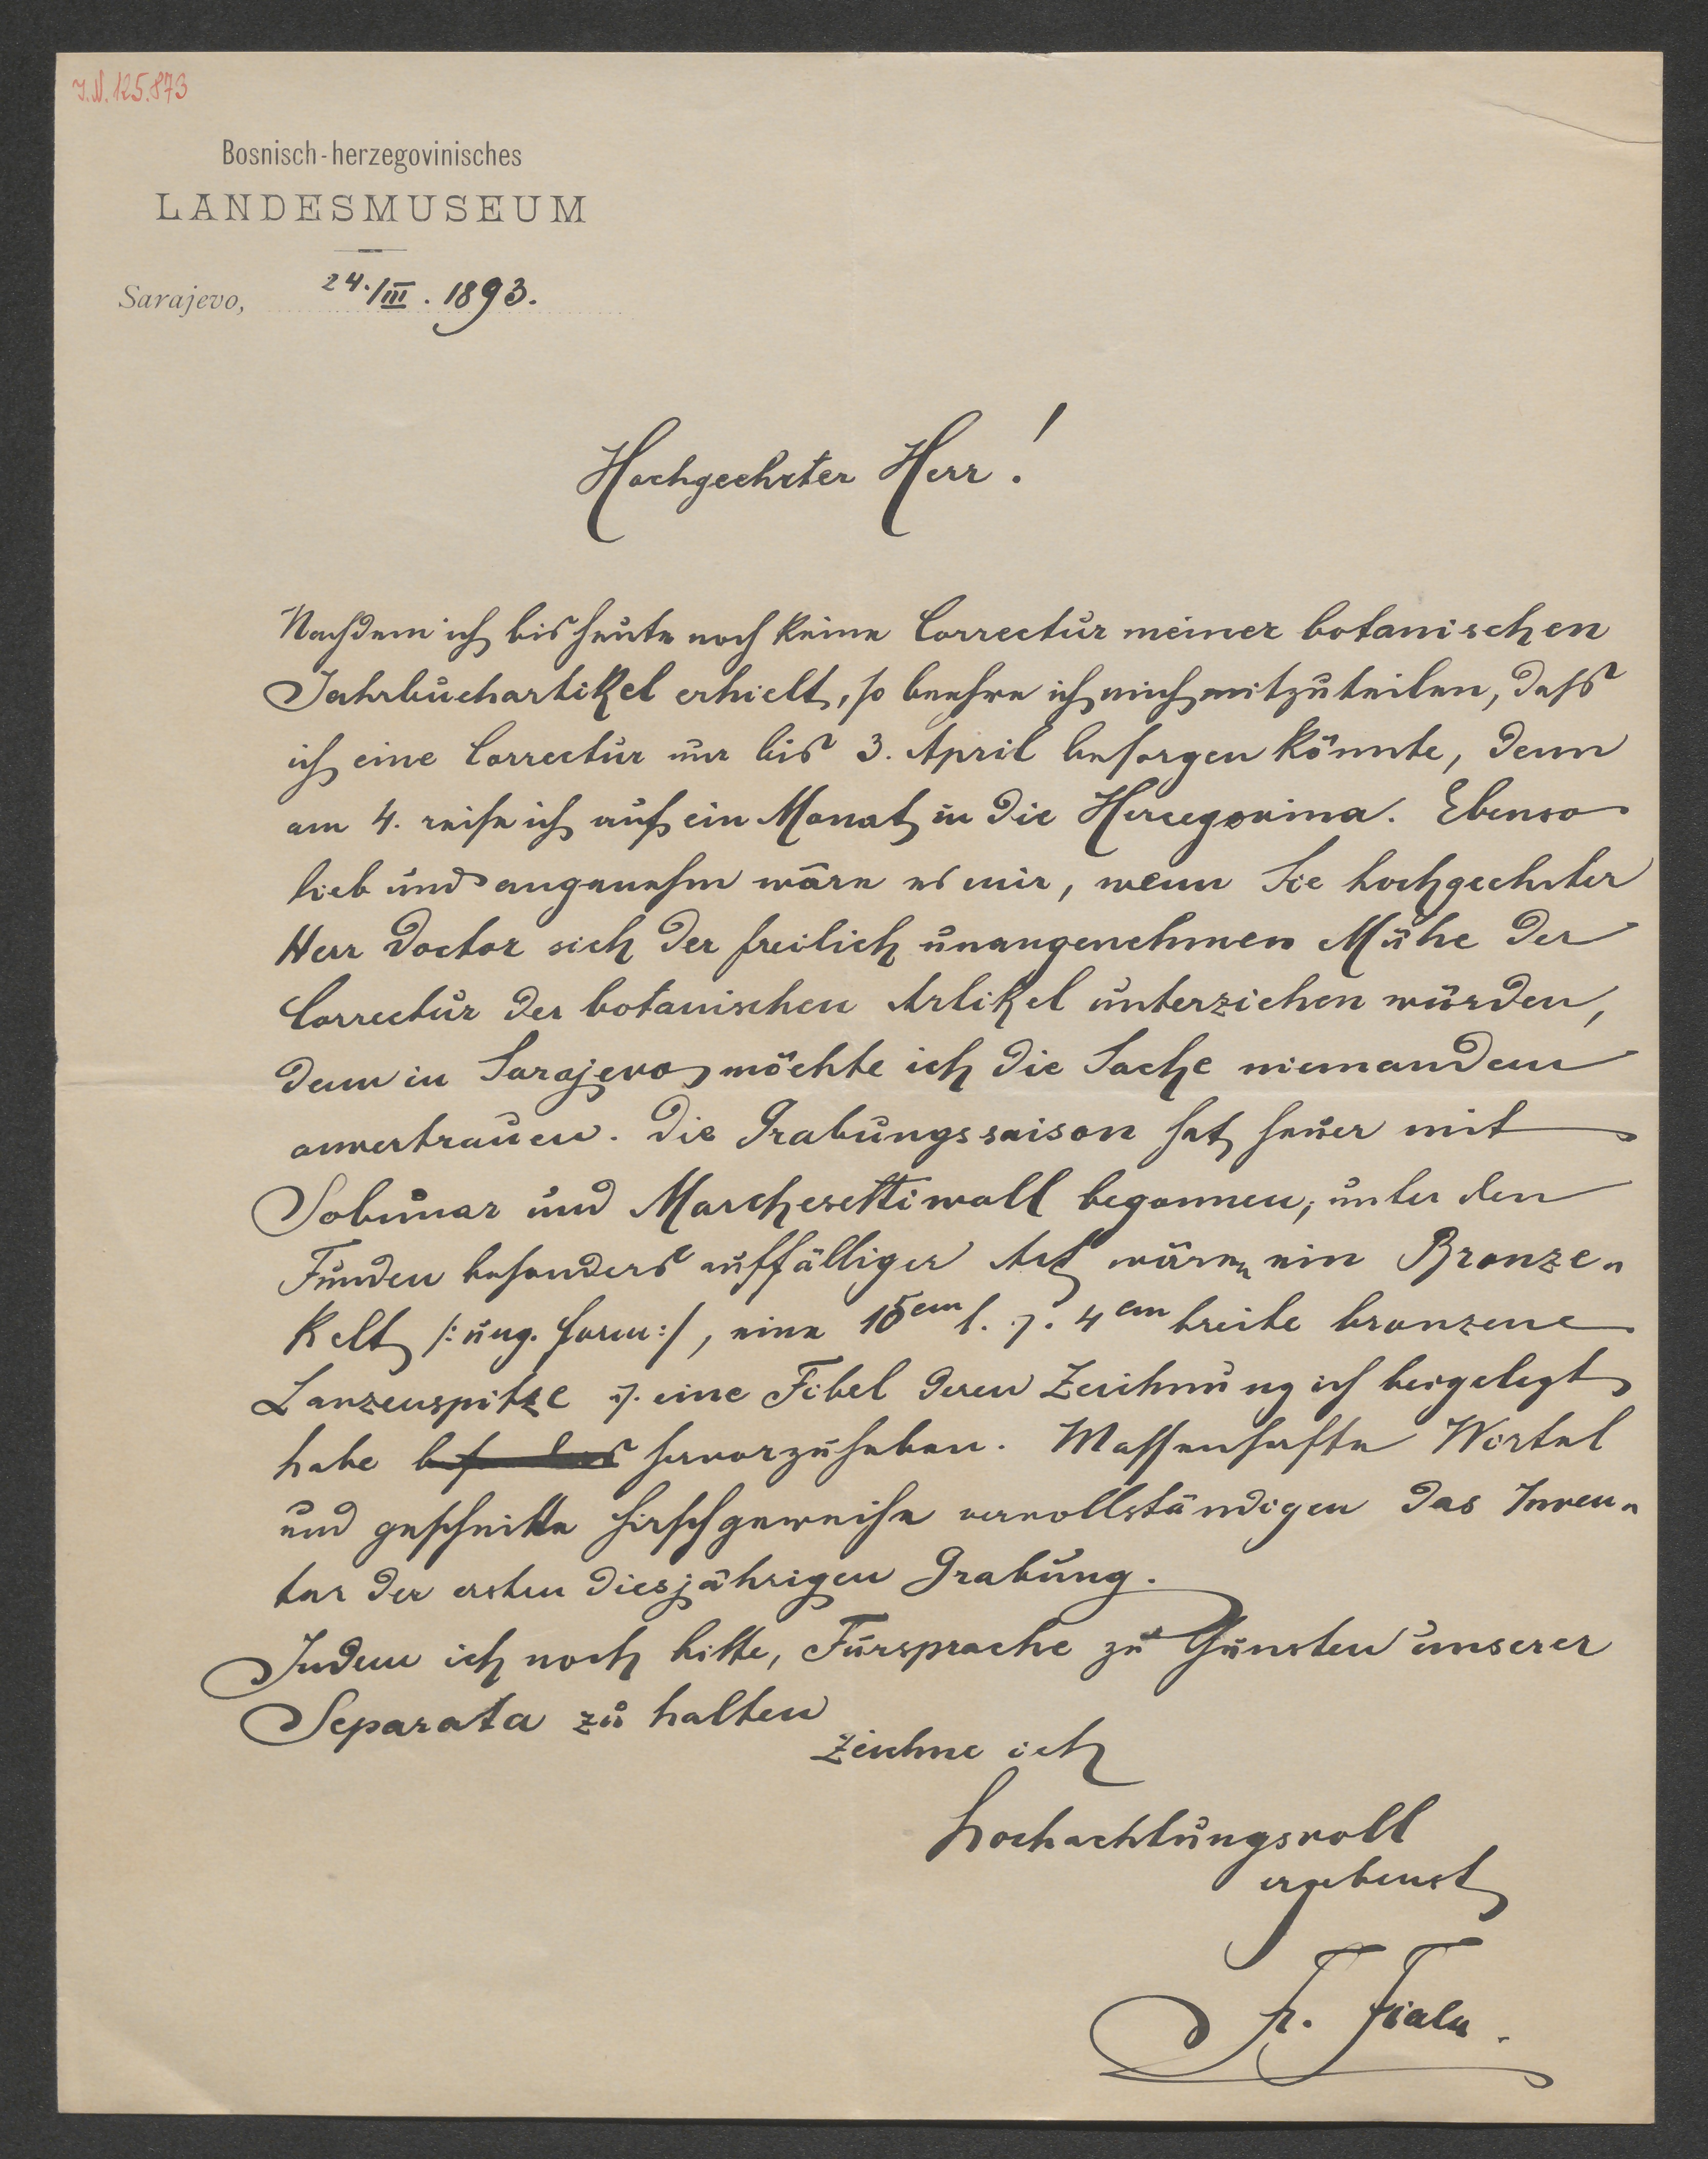 J.N. 125.873
Bosnisch-herzegovinisches
LANDESMUSEUM
Sarajevo, 24./III. 1893.
Hochgeehrter Herr!
Nachdem ich bis heute noch keine Correctur meiner botanischen
Jahrbuchartikel erhielt, so beehre ich mich mitzuteilen, daß
ich eine Correctur nur bis 3. April besorgen könnte, denn
am 4. reise ich auf ein Monat in die Hercegovina. Ebenso
lieb und angenehm wäre es mir, wenn Sie hochgeehrter
Herr Doctor sich der freilich unangenehmen Mühe der
Correctur der botanischen Artikel unterziehen würden,
denn in Sarajevo möchte ich die Sache niemandem
anvertrauen. Die Grabungssaison hat heuer mit
Sobunar und Marchesettiwall begonnen, unter den
Funden besonders auffälliger Art wären ein Bronze-
Kelt /: ung. Form :/, eine 15cm l. u. 4cm breite bronzene
Lanzenspitze u. eine Fibel deren Zeichnung ich beigelegt
habe hervorzuheben. Massenhafte Wirtel
und geschnitte Hirschgeweihe vervollständigen das Inven-
tar der ersten diesjährigen Grabung.
Indem ich noch bitte, Fürsprache zu Gunsten unserer
Separata zu halten
zeichne ich
hochachtungsvoll
ergebenst
Fr. Fiala.